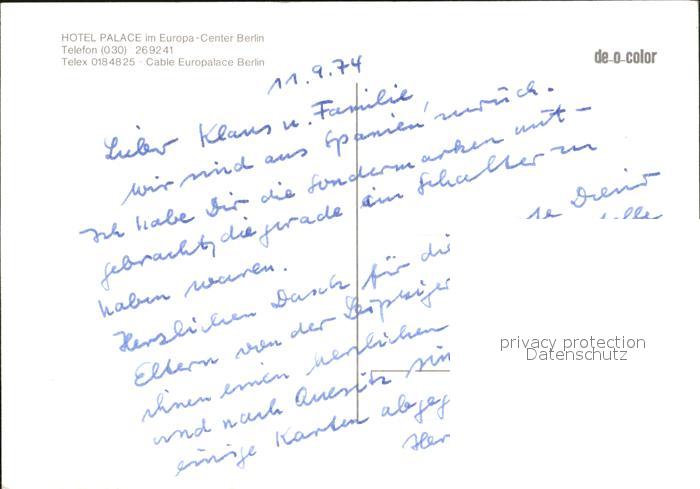 HOTEL PALACE im Europa-Center Berlin
Telefon (030) 269241
Telex 0184825 · Cable Europalace Berlin
de-o-color
11.9.74
Lieber Klaus u. Familie,
wir sind aus Spanien zurück.
Ich habe Dir die Sondermarken mit-
gebracht, die gerade am Schalter zu
haben waren.
Herzlichen Dank für die
Eltern von der Leipziger
ihnen einen herzlichen
und nach sin
einige Karten abgeg
Her
privacy protection
Datenschutz